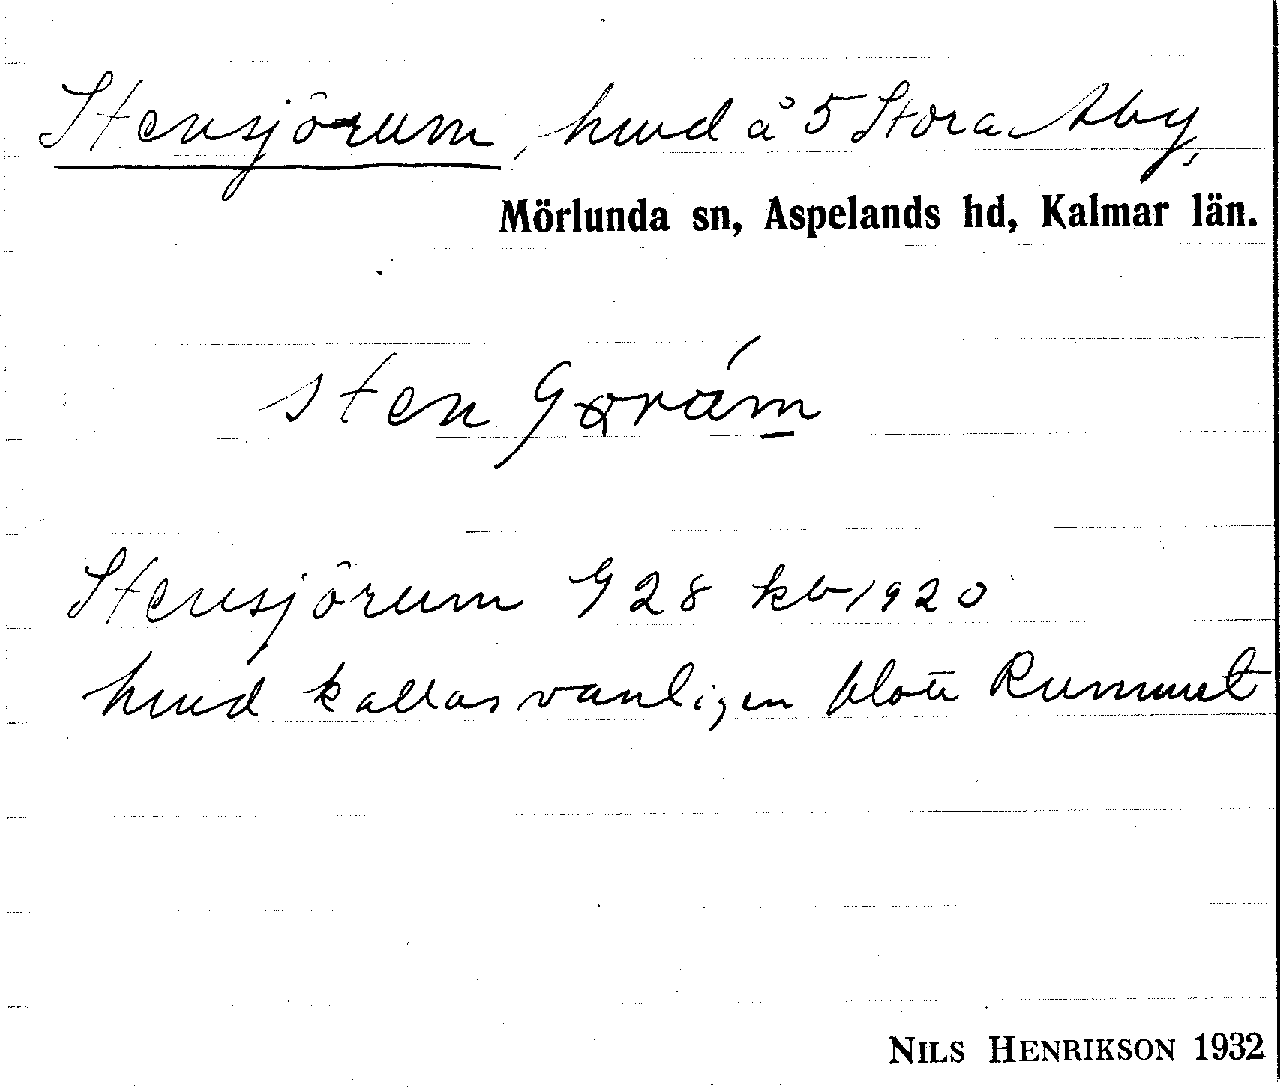 Stensjörum, hmd å 5 Stora Åby,
Mörlunda sn, Aspelands hd, Kalmar län.
sten
Stensjörum G 28 kb 1920
hmd kallas vanligen blott Rummet
NILS HENRIKSON 1932